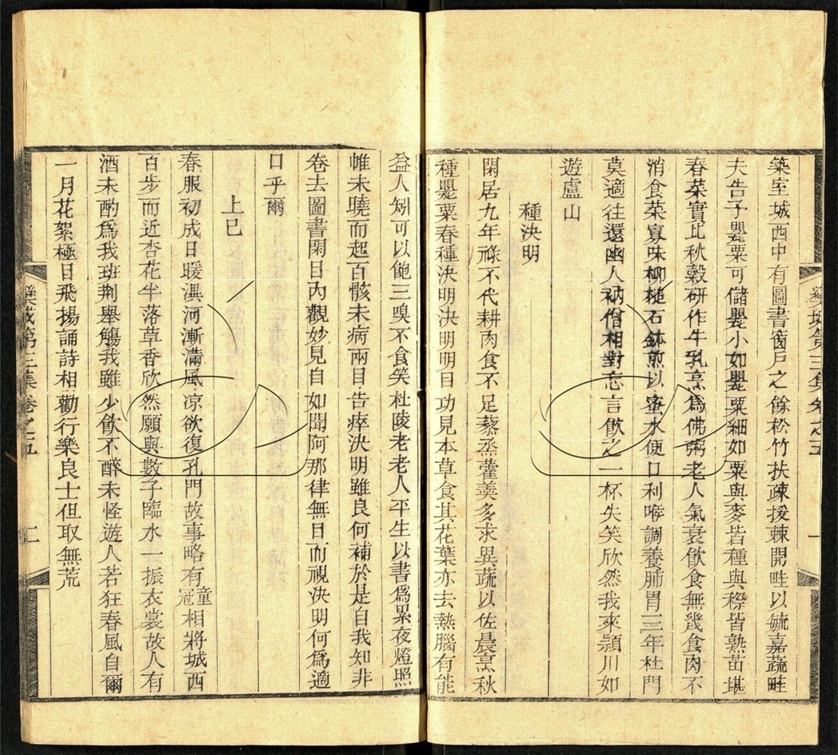 築室城西中有圖書窗戶之餘松竹扶疎援棘開畦以毓嘉蔬畦
夫告予罌粟可儲罌小如罌粟細如粟與麥皆種與穄皆熟苗堪
春菜實比秋穀研作牛乳烹為佛粥老人氣衰飲食無幾食肉不
消食菜寡味柳槌石鉢煎以蜜水便口利喉調養肺胃三年杜門
莫適往還幽人衲僧相對忘言飲之一杯失笑欣然我來潁川如
遊廬山
種決明
閑居九年祿不代耕肉食不足藜烝藿羹多求異蔬以佐晨烹秋
種罌粟春種決明決明明目功見本草食其花葉亦去熱腦有能
益人矧可以飽三嗅不食笑杜陵老老人平生以書為累夜燈照
帷未曉而起百骸未病兩目告瘁決明雖良何補於是自我知非
卷去圖書閑目內觀妙見自如聞阿那律無目而視決明何為適
口乎爾
上巳
春服初成日暖溟河漸滿風涼欲復孔門故事略有童冠相將城西
百步而近杏花半落草香欣然願與數子臨水一振衣裳故人有
酒未酌為我班荆舉觴我雖少飲不醉未怪遊人若狂春風自爾
一月花絮極目飛揚誦詩相勸行樂良士但取無荒
欒城第三集卷之五
一
欒城第三集卷之五
二